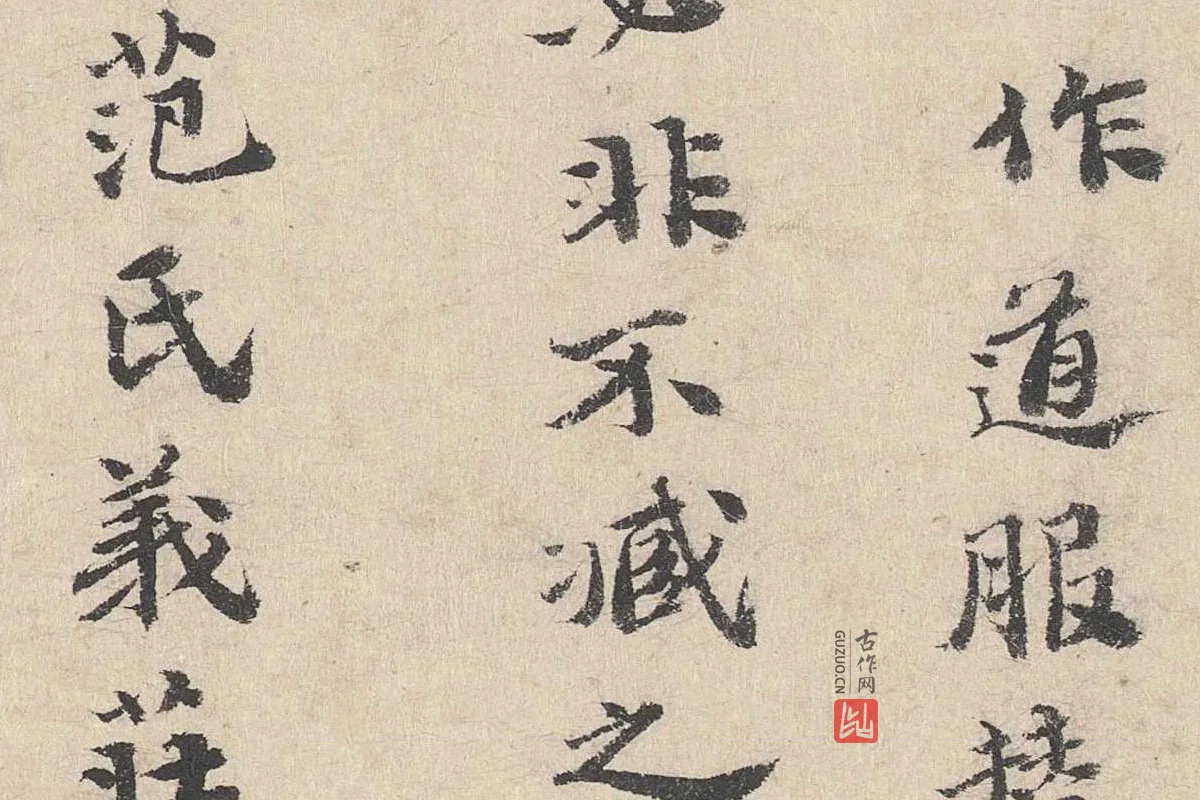 作道服
非不臧之
范氏義莊
古作网
GUZUO.CN